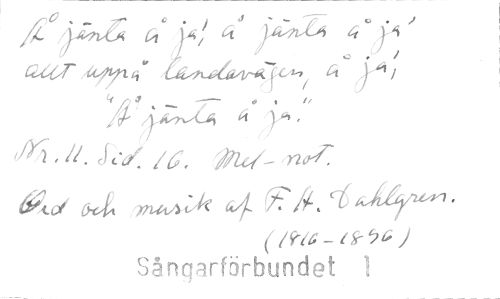 Å jänta å ja', å jänta å ja'
allt uppå landavägen, å ja',
"Å jänta å ja."
Nr. 11. Sid. 16. Mel-not.
Ord och musik af F. A. Dahlgren.
(1816-1896)
Sångarförbundet 1